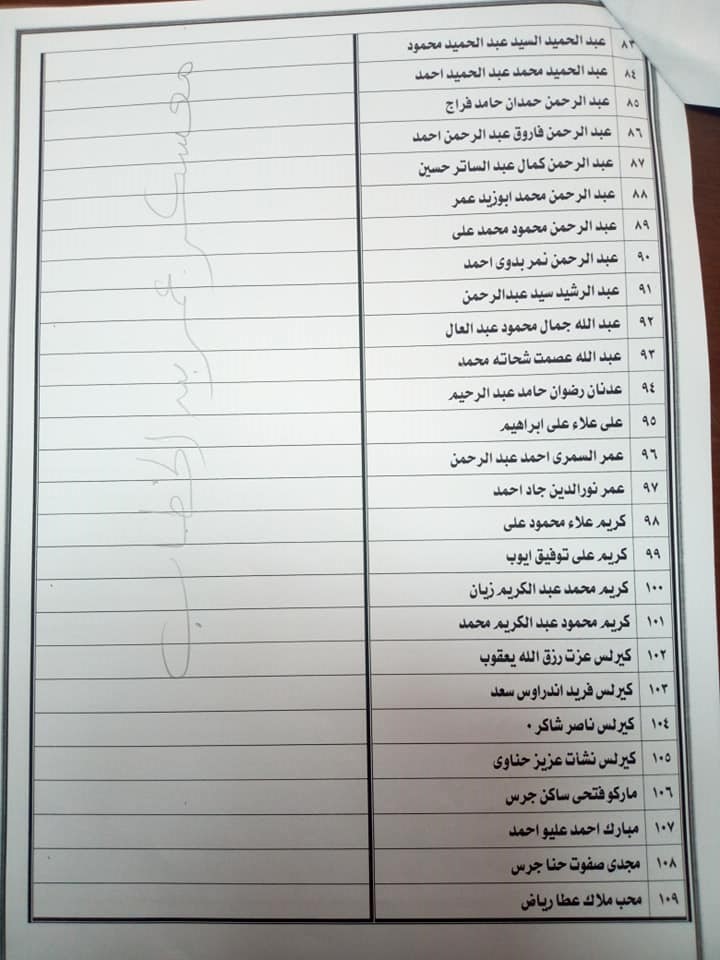 ٨٣ عبد الحميد السيد عبد الحميد محمود
٨٤ عبد الحميد محمد عبد الحميد احمد
٨٥ عبد الرحمن حمدان حامد فراج
٨٦ عبد الرحمن فاروق عبد الرحمن احمد
٨٧ عبد الرحمن كمال عبد الساتر حسين
٨٨ عبد الرحمن محمد ابوزيد عمر
٨٩ عبد الرحمن محمود محمد على
٩٠ عبد الرحمن نمر بدوى احمد
٩١ عبد الرشيد سيد عبدالرحمن
٩٢ عبد الله جمال محمود عبد العال
٩٣ عبد الله عصمت شحاته محمد
٩٤ عدنان رضوان حامد عبد الرحيم
٩٥ على علاء على ابراهيم
٩٦ عمر السمرى احمد عبد الرحمن
٩٧ عمر نورالدين جاد احمد
٩٨ كريم علاء محمود على
٩٩ كريم على توفيق ايوب
١٠٠ كريم محمد عبد الكريم زيان
١٠١ كريم محمود عبد الكريم محمد
١٠٢ كيرلس عزت رزق الله يعقوب
١٠٣ كيرلس فريد اندراوس سعد
١٠٤ كيرلس ناصر شاكر ٠
١٠٥ كيرلس نشأت عزيز حناوى
١٠٦ ماركو فتحى ساكن جرس
١٠٧ مبارك احمد عليو احمد
١٠٨ مجدى صفوت حنا جرس
١٠٩ محب ملاك عطا رياض
معسكر عمر بن الخطاب